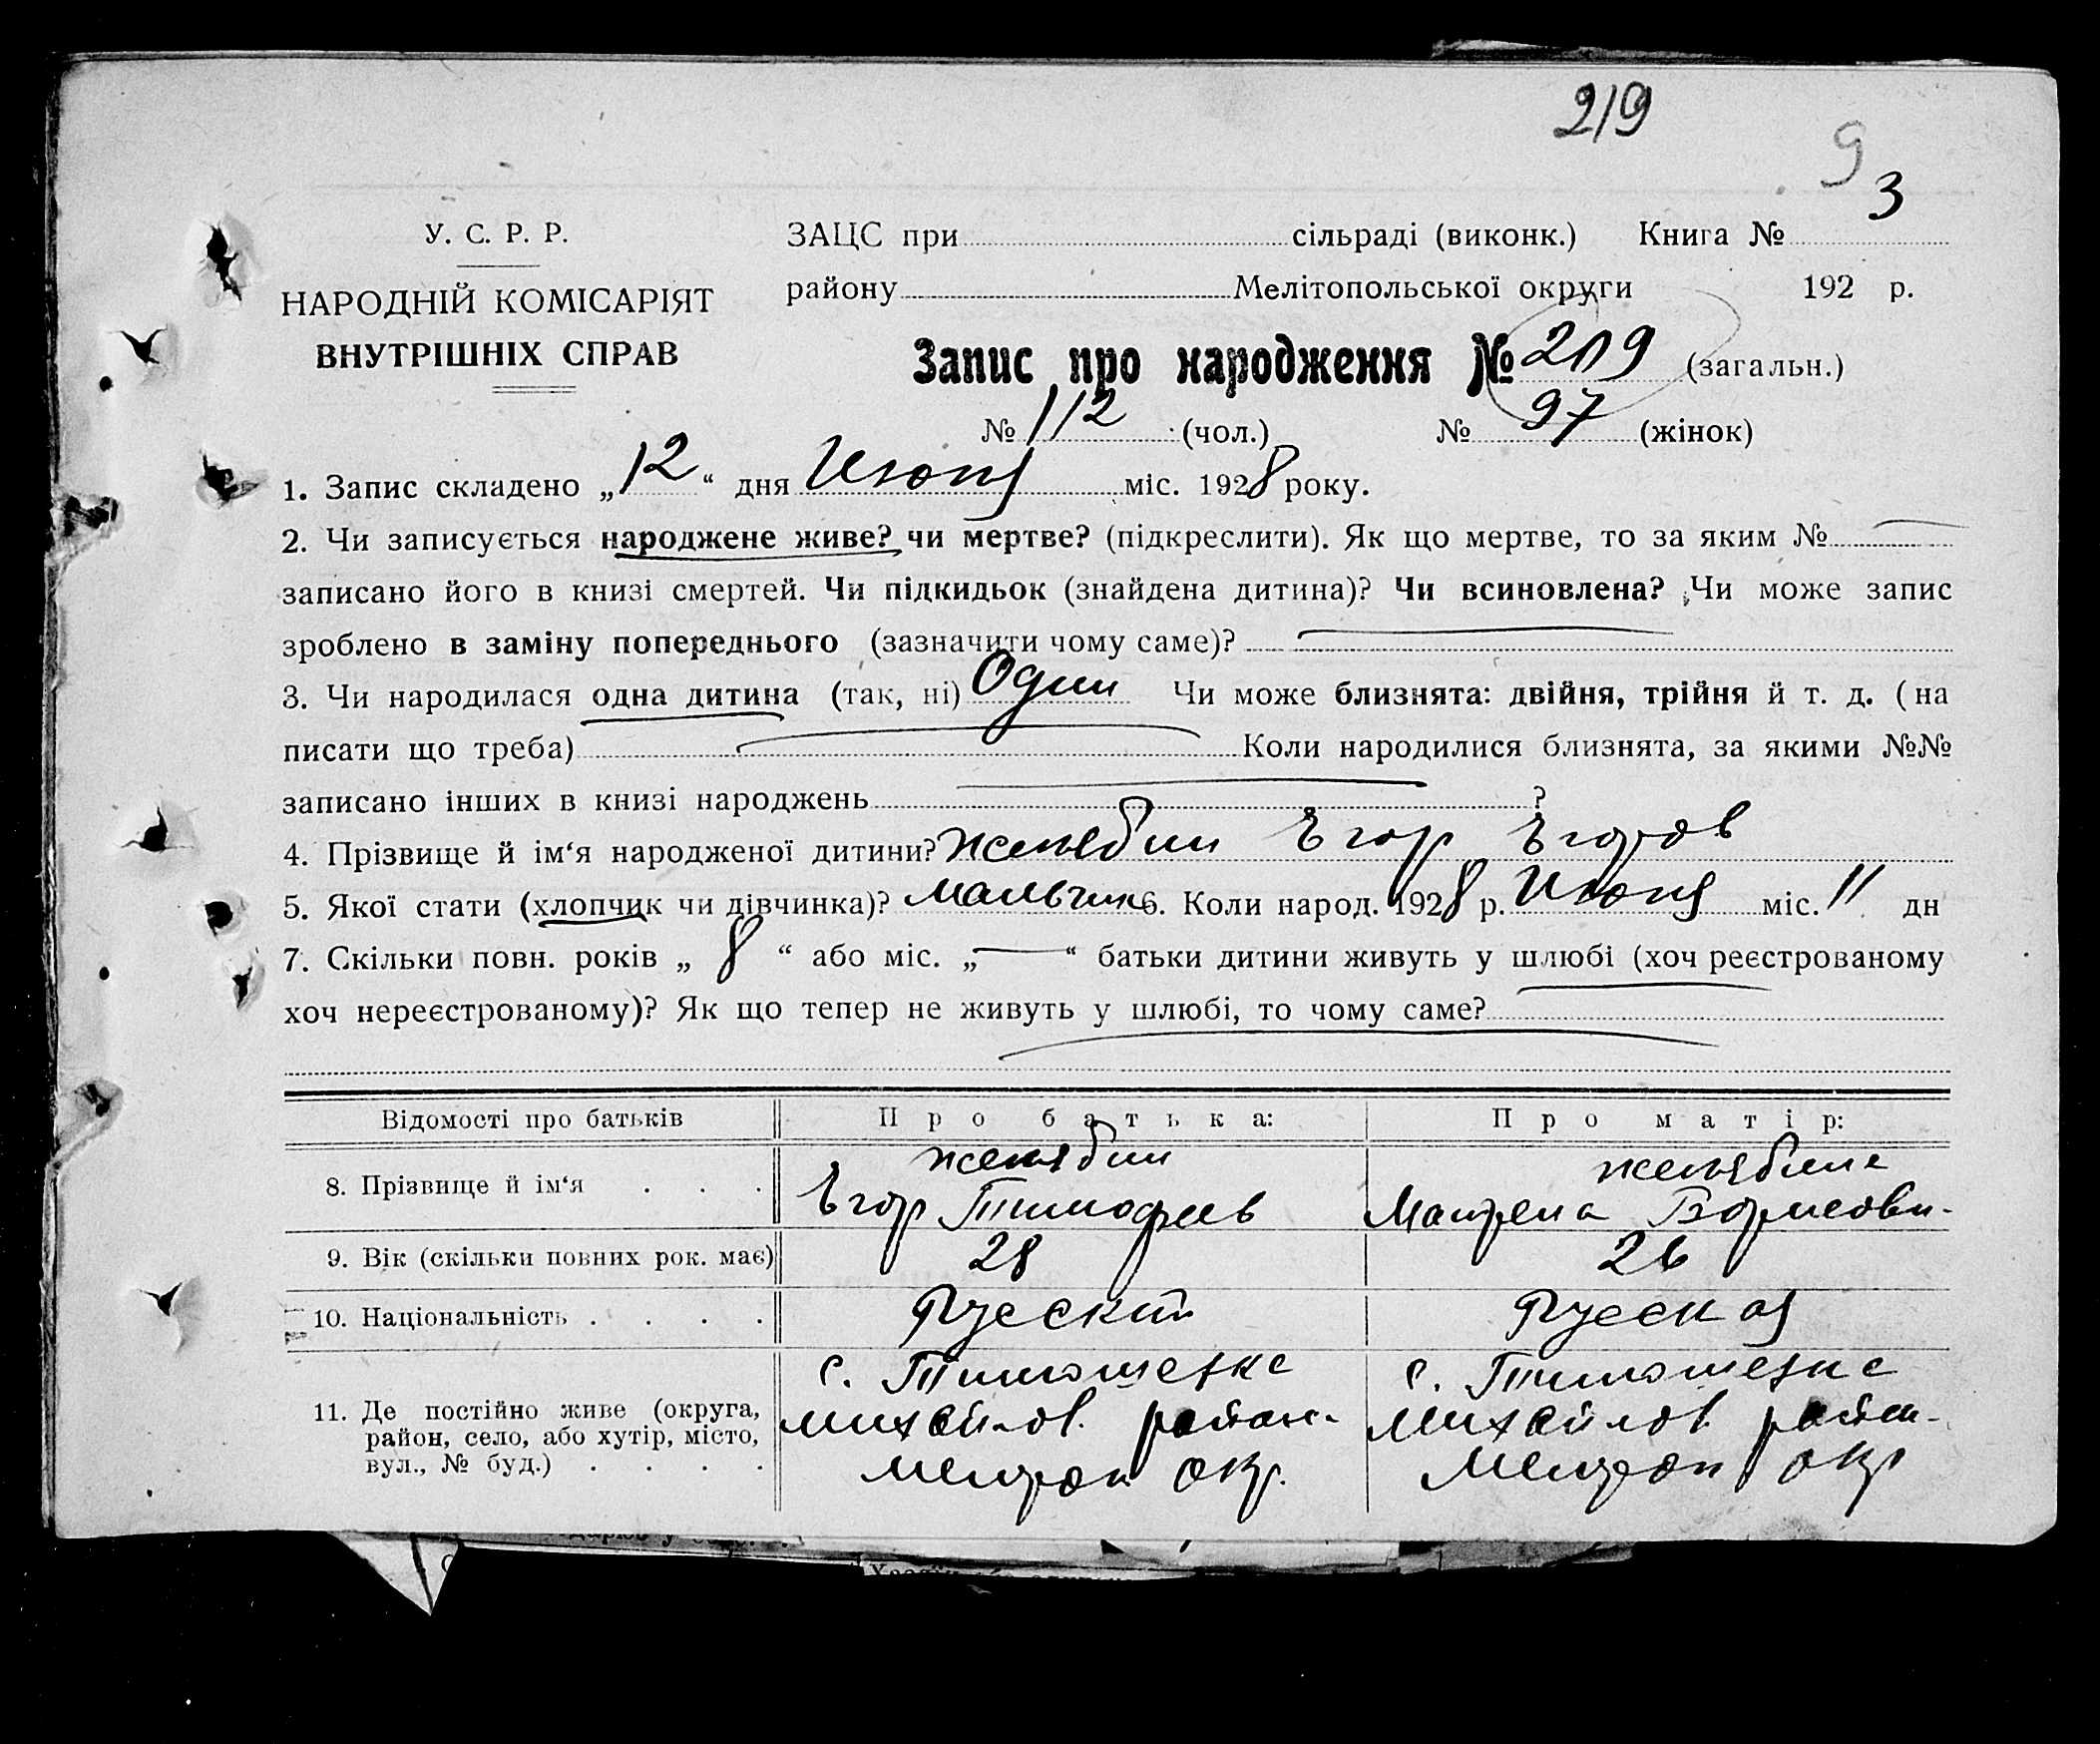 219
9
3
У. С. Р. Р.
НАРОДНІЙ КОМІСАРІЯТ
ВНУТРІШНІХ СПРАВ
ЗАЦС при сільраді (виконк.) Книга №
району Мелітопольської округи 192 р.
Запис про народження № 219 (загальн.)
№ 112 (чол.) № 97 (жінок)
1. Запис складено „12“ дня Июня міс. 1928 року.
2. Чи записується народжене живе? чи мертве? (підкреслити). Як що мертве, то за яким №
записано його в книзі смертей. Чи підкидьок (знайдена дитина)? Чи всиновлена? Чи може запис
зроблено в заміну попереднього (зазначити чому саме)?
3. Чи народилася одна дитина (так, ні) Один Чи може близнята: двійня, трійня й т. д. (на
писати що треба) Коли народилися близнята, за якими №№
записано інших в книзі народжень ?
4. Прізвище й ім‘я народженої дитини? Егор Егоров
5. Якої стати (хлопчик чи дівчинка)? Мальчик 6. Коли народ. 1928 р. Июня міс. 11 дн
7. Скільки повн. років „ 8 “ або міс. „ — “ батьки дитини живуть у шлюбі (хоч реєстрованому
хоч нереєстрованому)? Як що тепер не живуть у шлюбі, то чому саме?
Відомості про батьків Про батька: Про матір:
8. Прізвище й ім‘я . . .
Егор Тимофеев
9. Вік (скільки повних рок. має) 28 26
10. Національність . . . . Русский Русская
11. Де постійно живе (округа,
район, село, або хутір, місто,
вул., № буд.) . . . .
с. Тимошевка
Михайлов. район.
Мелитоп окр.
с. Тимошевка
Михайлов. район.
Мелитоп окр